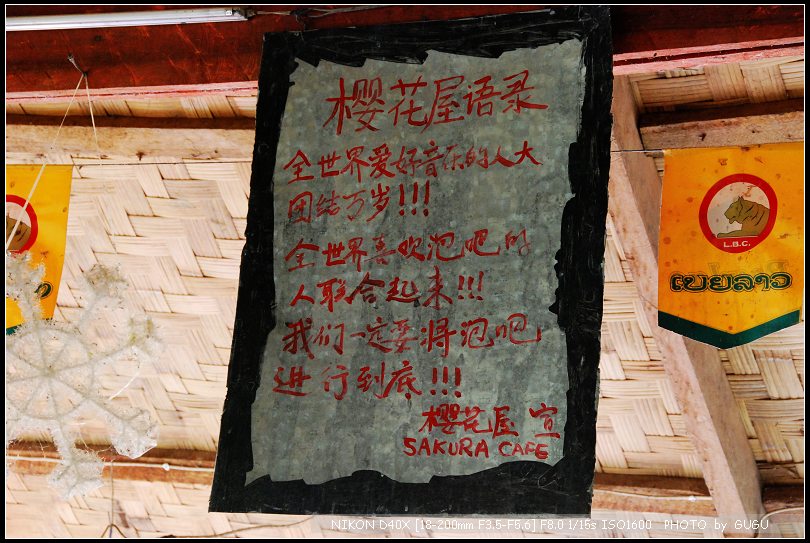 樱花屋语录
全世界爱好音乐的人大
团结万岁!!!
全世界喜欢泡吧的
人联合起来!!!
我们一定要将泡吧
进行到底!!!
樱花屋 宣
SAKURA CAFE
L.B.C.
ເບຍລາວ
NIKON D40X [18-200mm F3.5-F5.6] F8.0 1/15s ISO1600 PHOTO by GUGU